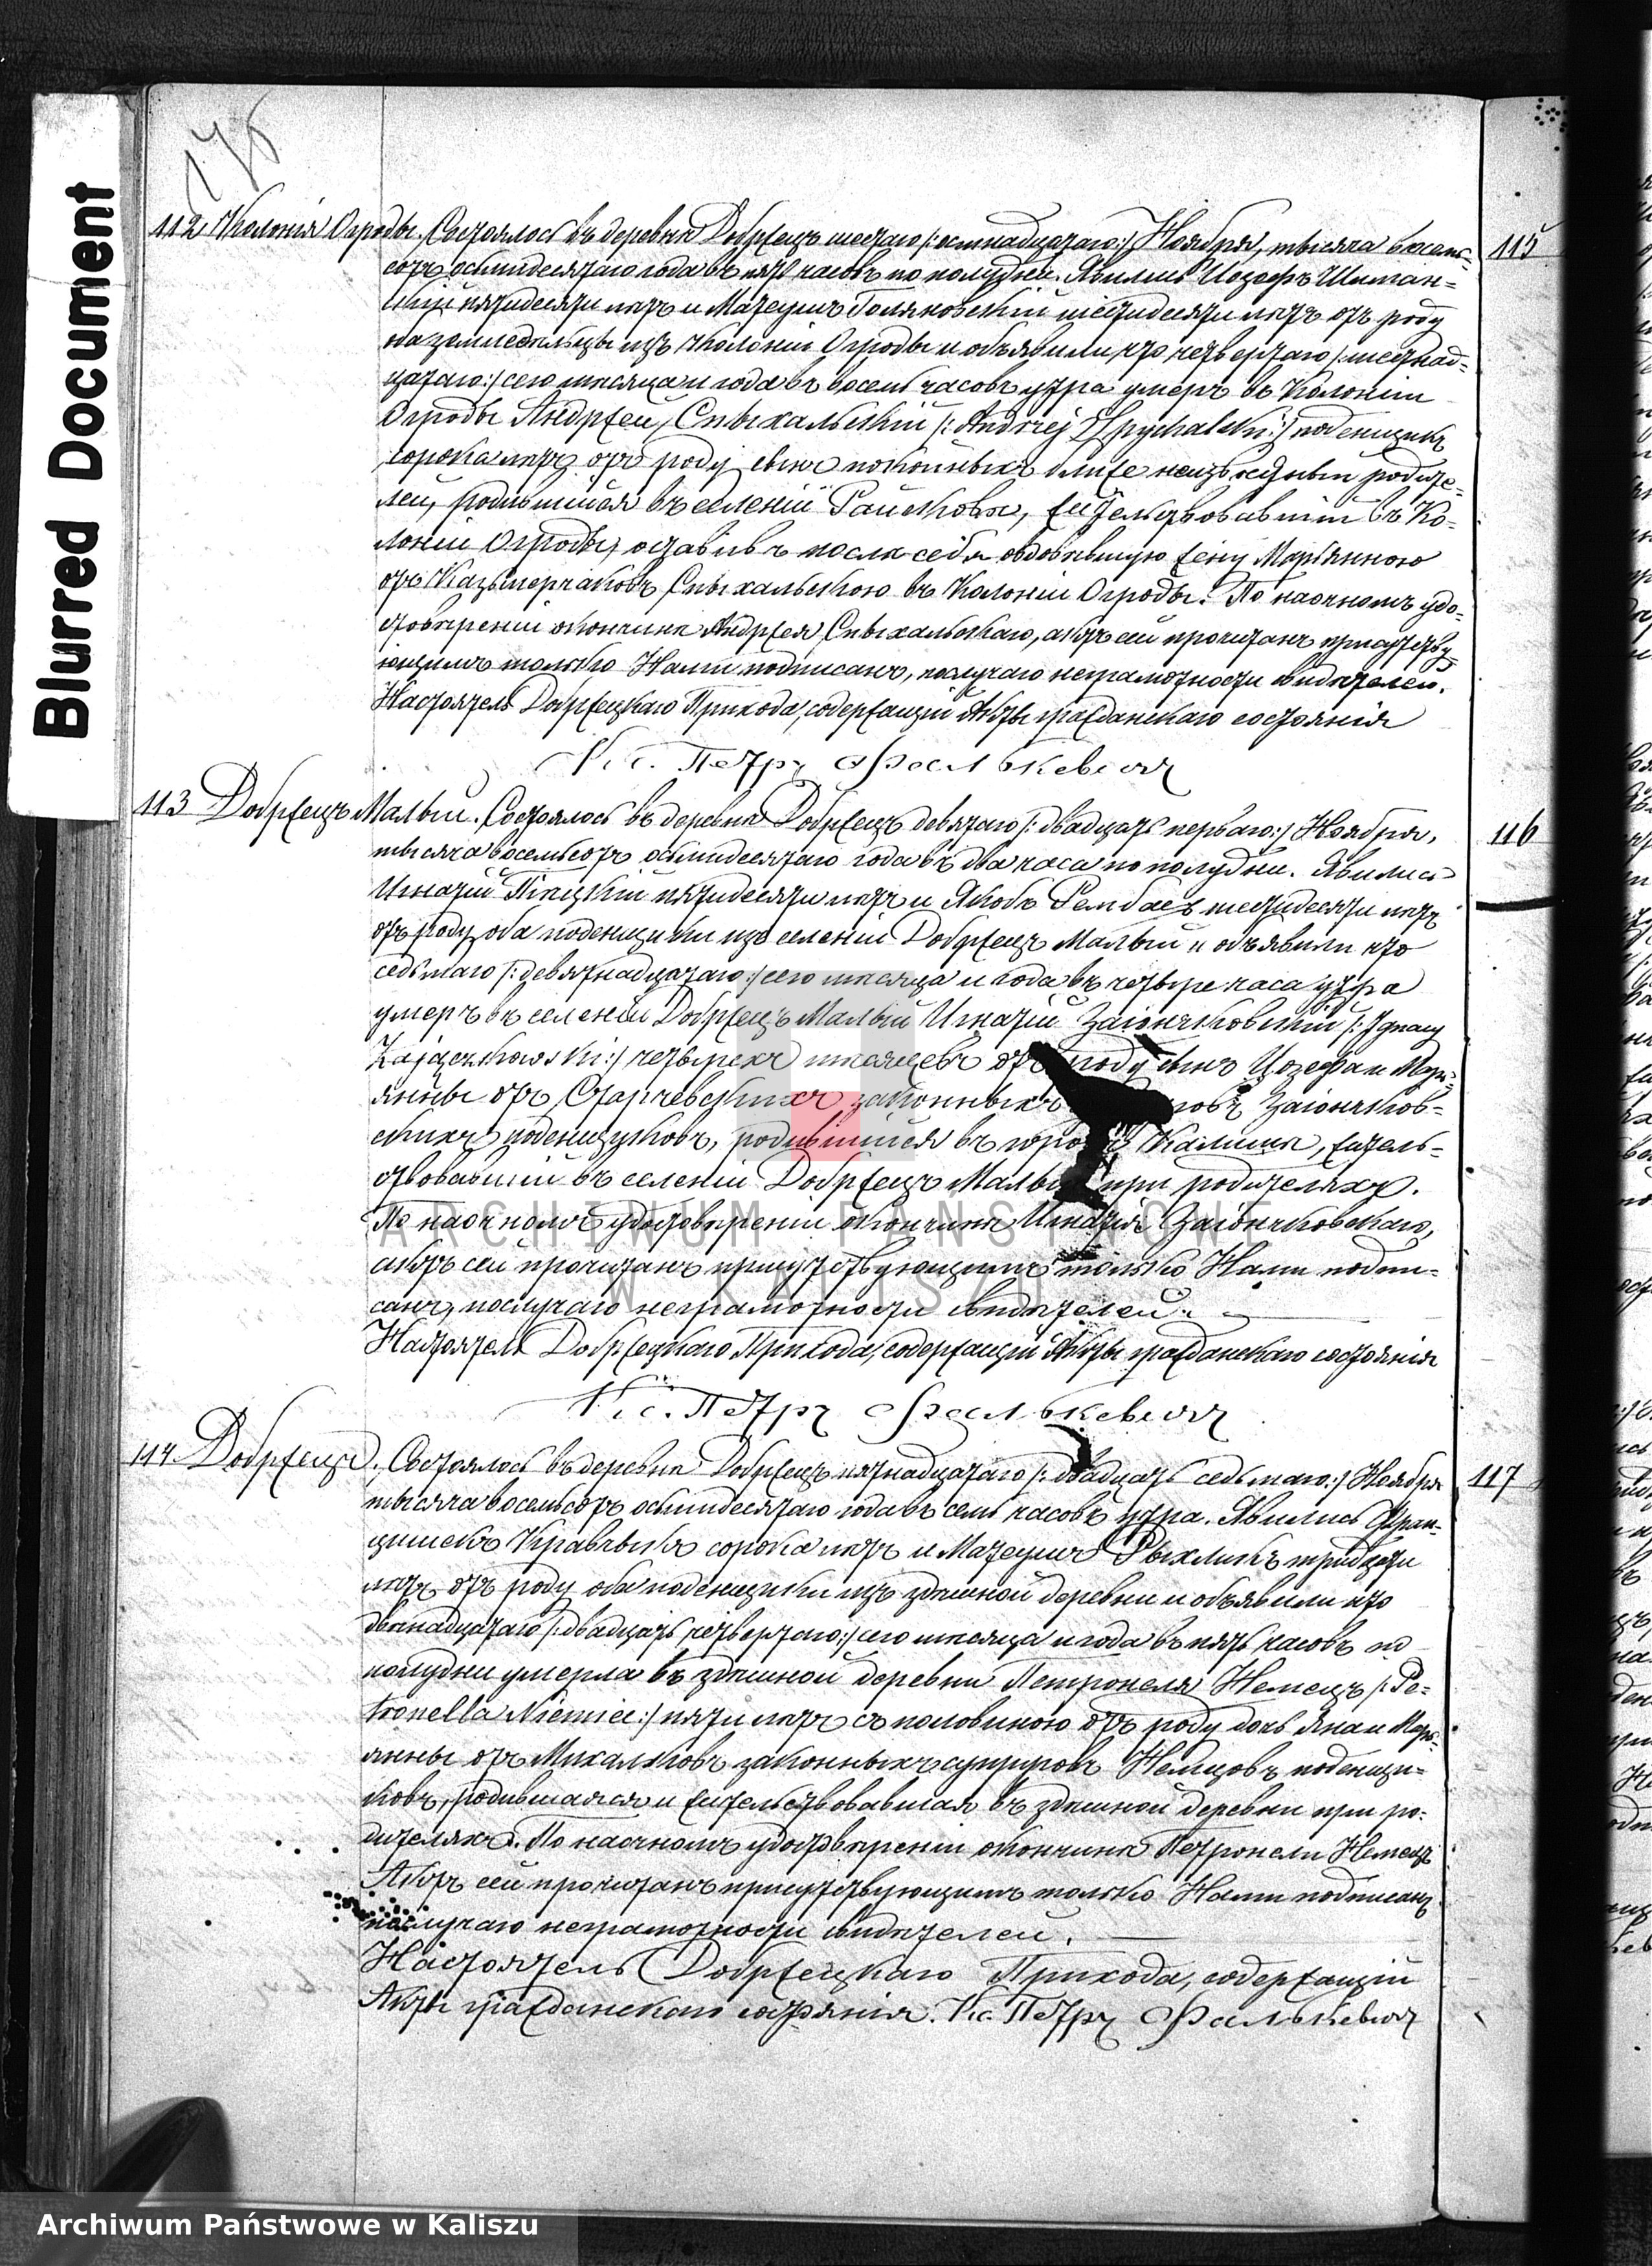 Blurred Document
176
112 Колонія Огроды. Состоялось въ деревнѣ Добржецъ шестаго /:осмнадцатаго:/ Ноября, тысяча восемь=
сотъ осьмидесятаго года въ пять часовъ по полудни. Явились Іозефъ Шиман=
скій пятидесяти лѣтъ и Матеушъ Голяновскій шестидесяти лѣтъ отъ роду
оба земледѣльцы изъ Колоніи Огроды и объявили, что четвертаго /:шестнад=
цатаго:/ сего мѣсяца и года въ восемь часовъ утра умеръ въ Колоніи
Огроды Андржей Спыхальскій /:Andrzej Spychalski:/ поденщикъ
сорока лѣтъ отъ роду, сынъ покойныхъ ближе неизвѣстныхъ родите=
лей, родившійся въ селеніи Райсковѣ, жительствовавшій въ Ко=
лоніи Огроды, оставивъ послѣ себя овдовѣвшую жену Маріянною
отъ Казьмерчаковъ Спыхальскою въ Колоніи Огроды. По наочномъ удо=
стовѣреніи о кончинѣ Андржея Спыхальскаго, актъ сей прочитанъ присутству
ющимъ только Нами подписанъ, по случаю неграмотности свидѣтелей.
Настоятель Добржецкаго Прихода, содержащій Акты гражданскаго состоянія
Кс. Петръ Фалькевичъ
113 Добржецъ Малый. Состоялось въ деревнѣ Добржецъ девятаго /:двадцать перваго:/ Ноября,
тысяча восемьсотъ осьмидесятаго года въ два часа по полудни. Явились
Игнатій пятидесяти лѣтъ и Якобъ шестидесяти лѣтъ
отъ роду, оба поденщики изъ селеніи Добржецъ Малый и объявили что
седьмаго /:девятнадцатаго:/ сего мѣсяца и года въ четыре часа утра
умеръ въ селеніи Добржецъ Малый Игнатій Заіончковскій /:Ignacy
Zajączkowski:/ четырехъ мѣсяцевъ отъ роду сынъ Іозефа и Марі=
янны отъ Старчевскихъ законныхъ говъ Заіончков=
скихъ поденщиковъ, родившійся въ городѣ Калишѣ, житель=
ствовавшій въ селеніи Добржецъ Малый при родителяхъ.
По наочномъ удостовѣреніи о кончинѣ Игнатія Заіончковскаго,
актъ сей прочитанъ присутствующимъ только Нами подпи=
санъ, по случаю неграмотности свидѣтелей.
Настоятель Добржецкаго Прихода, содержащій Акты гражданскаго состоянія
Кс. Петръ Фалькевичъ
114. Добржецъ. Состоялось въ деревнѣ Добржецъ пятнадцатаго /:двадцать седьмаго:/ Ноября
тысяча восемьсотъ осьмидесятаго года въ семь часовъ утра. Явились Фран=
цишекъ Кравчыкъ сорока лѣтъ и Матеушъ Рыхликъ тридцати
лѣтъ отъ роду оба поденщики изъ здѣшной деревни и объявили что
двѣнадцатаго /:двадцать четвертаго:/ сего мѣсяца и года въ пять часовъ по
полудни умерла въ здѣшной деревни Петронеля Немецъ /:Pe=
tronella Niemiec:/ пяти лѣтъ съ половиною отъ роду дочь Яна и Марі=
янны отъ Михалаковъ законныхъ супруговъ Немцовъ поденщи=
ковъ, родившаяся и жительствовавшая въ здѣшной деревни при ро=
дителяхъ. По наочномъ удостовѣреніи о кончинѣ Петронели Немецъ
Актъ сей прочитанъ присутствующимъ только Нами подписанъ,
по случаю неграмотности свидѣтелей.
Настоятель Добржецкаго Прихода, содержащій
Акты гражданскаго состоянія. Кс. Петръ Фалькевичъ
115
116
117
ARCHIWUM PAŃSTWOWE
W KALISZU
Archiwum Państwowe w Kaliszu